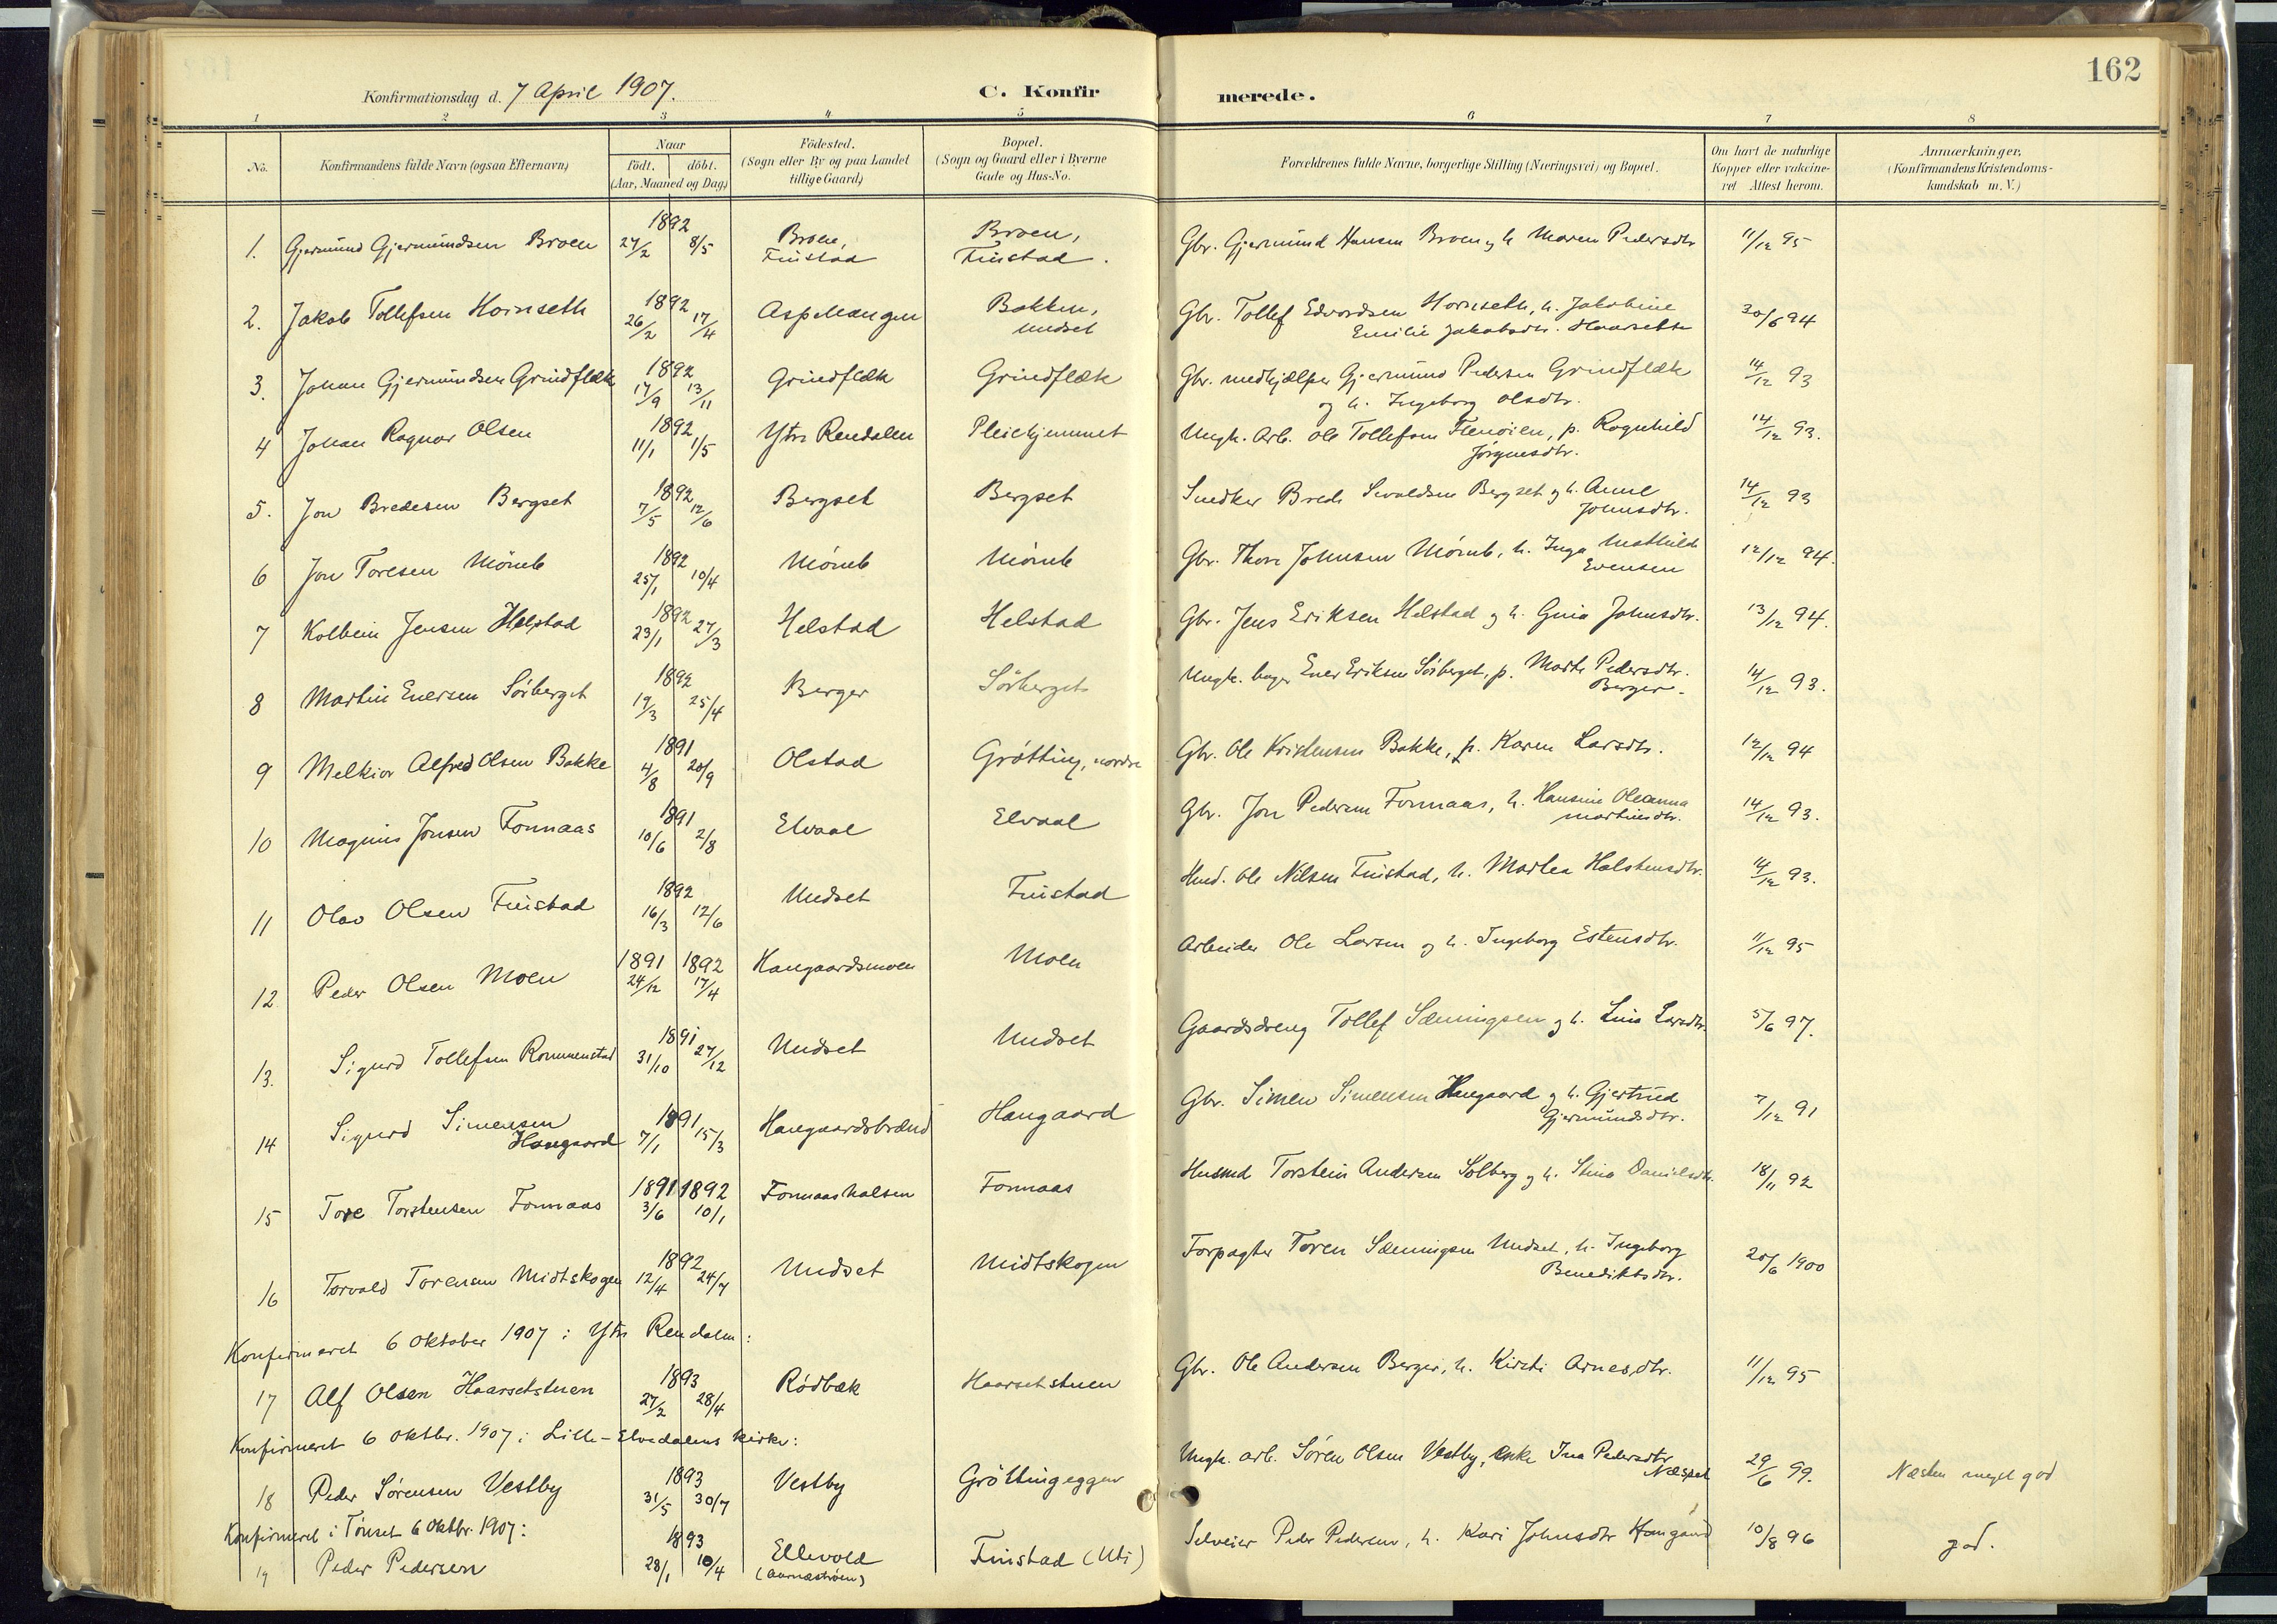 162
Konfirmationsdag d. 7 April 1907.
C. Konfirmerede.
1 2 3 4 5 6 7 8
No.
Konfirmandens fulde Navn (ogsaa Efternavn)
Naar
födt. döbt.
(Aar, Maaned og Dag)
Födested.
(Sogn eller By og paa Landet
tillige Gaard)
Bopæl.
(Sogn og Gaard eller i Byerne
Gade og Hus-No.
Forældrenes fulde Navne, borgerlige Stilling (Næringsvei) og Bopæl.
Om havt de naturlige
Kopper eller vaccine-
ret Attest herom.
Anmærkninger,
(Konfirmandens Kristendoms-
kundskab m. V.)
1. Gjermund Gjermundsen Broen 1892 27/2 8/5 Broen, Finstad Broen, Finstad. Gbr. Gjermund Hansen Broen og h Maren Pedersdtr 11/12 95
2. Jakob Tollefsen Hornseth 1892 26/2 17/4 Aspehaugen Bakken, Undset Gbr. Tollef Edvardsen Hornseth, h. Jakobine Emilie Jakobsdtr. Haarseth 30/6 94
3. Johan Gjermundsen Grindflæk 1892 17/9 13/11 Grindflæk Grindflæk Gbr. medhjælper Gjermund Pedersen Grindflæk og h. Ingeborg Olsdtr. 14/12 93
4 Johan Ragnar Olsen 1892 11/1 1/5 Ytre Rendalen Pleiehjemmet Ungk. Arb. Ole Tollefsen Flenöien, p. Ragnhild Jörgensdtr. 14/12 93.
5. Jon Bredesen Bergset 1892 7/5 12/6 Bergset Bergset Snedker Brede Sivaldsen Bergset og h. Anne Johnsdtr. 14/12 93
6 Jon Toresen Mömb 1892 25/1 10/4 Mömb Mömb Gbr. Thore Johnsen Mömb, h. Inga Mathilde Evensen 12/12 94.
7 Kolbein Jensen Helstad 1892 23/1 27/3 Helstad Helstad Gbr. Jens Eriksen Helstad og h. Guia Johnsdtr. 13/12 94.
8 Martin Enersen Sörberget 1892 19/3 25/4 Berger Sörberget Ungk. bager Ener Eriksen Sörberget, p. Marte Pedersdtr. Berger. 14/12 93.
9 Melkior Alfred Olsen Bakke 1891 4/8 20/9 Olstad Grötting, nordre Gbr. Ole Kristensen Bakke, p. Karen Larsdtr. 12/12 94
10 Magnus Jonsen Fonnaas 1891 10/6 2/8 Elvaal Elvaal Gbr. Jon Pedersen Fonnaas, h. Hansine Oleanna Martinsdtr. 14/12 93.
11 Olav Olsen Finstad 1892 16/3 12/6 Undset Finstad Hmd. Ole Nilsen Finstad, h. Martea Halstensdtr. 14/12 93.
12 Peder Olsen Moen 1891 24/12 1892 17/4 Haugaardsmoen Moen Arbeider Ole Larsen og h. Ingeborg Estensdtr. 11/12 95
13. Sigurd Tollefsen Rommenstad 1891 31/10 27/12 Undset Undset Gaardsdreng Tollef Sæmingsen og h. Lina Larsdtr. 5/6 97.
14 Sigurd Simensen Haugaard 1891 7/1 15/3 Haugaardsbrænd Haugaard Gbr. Simen Simensen Haugaard og h. Gjertrud Gjermundsdtr. 7/12 91
15 Tore Torstensen Fonnaas 1891 3/6 1892 10/1 Fonnaashalsen Fonnaas Husmd Torstein Andersen Solberg og h. Stina Danielsdtr. 18/11 92
16 Torvald Torensen Midtskogen 1892 12/4 24/7 Undset Midtskogen Forpagter Toren Sæmingsen Undset, h. Ingeborg Benediktsdtr. 20/6 1900
Konfirmeret 6 Oktober 1907 i Ytre Rendalen:
17 Alf Olsen Haarsetstuen 1893 27/2 28/4 Rödbæk Haarsetstuen Gbr. Ole Andersen Berger, h. Kirsti Arnesdtr. 11/12 95
Konfirmeret 6 Oktbr. 1907 i Lille-Elvedalens kirke:
18 Peder Sörensen Vestby 1893 31/5 30/7 Vestby Gröttingeggen Ungk. arb. Sören Olsen Vestby, enke Ina Pedersdtr Næsset 29/6 99. Næsten meget god
Konfirmeret i Tönset 6 Oktbr. 1907:
19 Peder Pedersen 1893 28/1 10/4 Ellevold Finstad (Uti) Selveier Peder Pedersen, h. Kari Johnsdtr Haugaard 10/8 96 god.